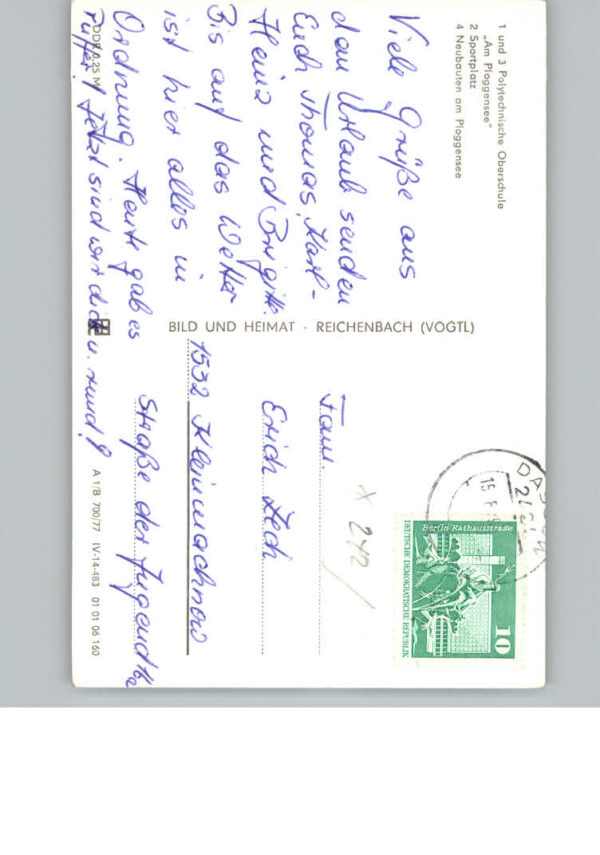 1 und 3 Polytechnische Oberschule
„Am Ploggensee"
2 Sportplatz
4 Neubauten am Ploggensee
Viele Grüße aus
dem Urlaub senden
Euch Thomas, Karl-
Heinz und Brigitte.
Bis auf das Wetter
ist hier alles in
Ordnung. Heute gab es
Puffer! Jetzt sind wir dick u. rund!
DDR 0,25 M
BILD UND HEIMAT · REICHENBACH (VOGTL)
A 1/B 700/77 IV-14-483 01 01 06 160
Fam.
Erich Zech
1532 Kleinmachnow
Straße der Jugend
x 242
Berlin Rathausstraße
10
DEUTSCHE DEMOKRATISCHE REPUBLIK